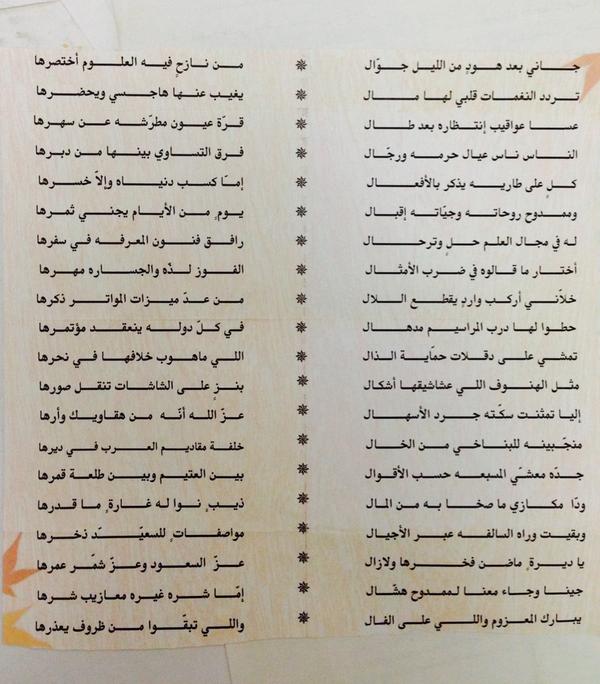 جاني بعد هودٍ من الليل جوّال ✵ من نازحٍ فيه العلوم أختصرها
تردد النغمات قلبي لها مال ✵ يغيب عنها هاجسي ويحضرها
عسا عواقيب إنتظاره بعد طال ✵ قرّة عيون مطرّشه عن سهرها
الناس ناس عيال حرمه ورجّال ✵ فرق التساوي بينها من دبرها
كلٍ على طاريه يذكر بالأفعال ✵ إمّا كسب دنياه وإلاّ خسرها
وممدوح روحاته وجيّاته إقبال ✵ يومٍ من الأيام يجني ثمرها
له في مجال العلم حلٍ وترحال ✵ رافق فنون المعرفه في سفرها
أختار ما قالوه في ضرب الأمثال ✵ الفوز لذّه والجساره مهرها
خلاّني أركب واردٍ يقطع اللال ✵ من عدّ ميزات المواتر ذكرها
حطوا لها درب المراسيم مدهال ✵ في كلّ دوله ينعقد مؤتمرها
تمشي على دقلات حمّاية الذال ✵ اللي ماهوب خلافها في نحرها
مثل الهنوف اللي عشاشيقها أشكال ✵ بنزٍ على الشاشات تنقل صورها
إليا تمثنت سكّته جرد الأسهال ✵ عزّ الله أنّه من هقاويك وأرها
منحّبينه للبناخي من الخال ✵ خلفة مقاديم العرب في ديرها
جدّه معشّي المسبعه حسب الأقوال ✵ بين العتيم وبين طلعة قمرها
وذا مكازي ما صخا به من المال ✵ ذيبٍ نوا له غارةٍ ما قدرها
وبقيت وراه السالفه عبر الأجيال ✵ مواصفاتٍ للسعيّد ذخرها
يا ديرةٍ ماضن فخرها ولازال ✵ عزّ السعود وعزّ شمّر عمرها
جينا وجاء معنا لممدوح هشّال ✵ إمّا شره غيره معازيب شرها
يبارك المعزوم واللي على الفال ✵ واللي تبقّوا من ظروف يعذرها